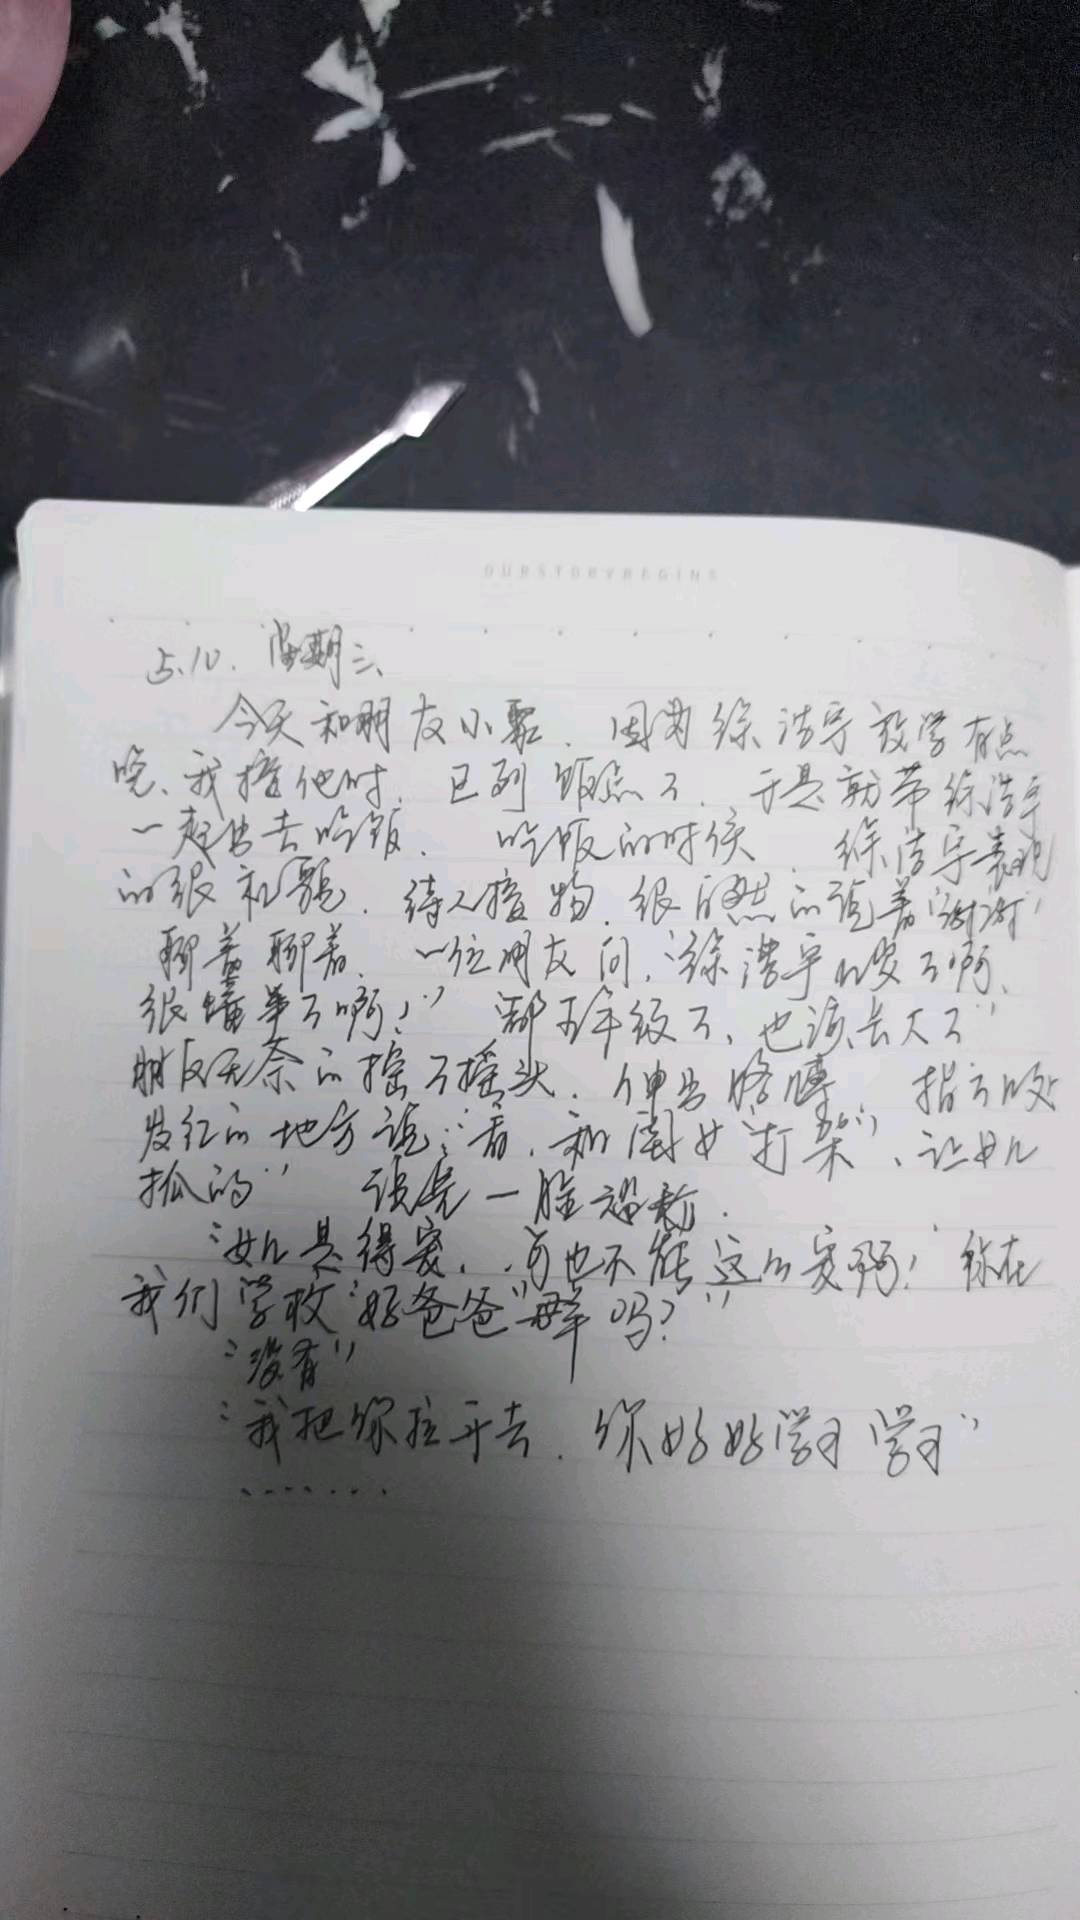 OURSTORYBEGINS
5.10. 星期三、
今天和朋友小聚、因为徐浩宇放学有点
晚、我接他时、已到饭点了、于是就带徐浩宇
一起出去吃饭、吃饭的时候、徐浩宇表现
的很礼貌、待人接物、很自然的说着“谢谢”
聊着聊着、一位朋友问，“徐浩宇 了啊、
很懂事了啊！” “都五年级了、也该长大了”
朋友无奈的摇了摇头、伸出胳膊 指了
发红的地方说：“看、和闺女“打架”、让女儿
抓的” 一脸
“女儿是得宠、可也不能这么宠啊！你在
我们学校“好爸爸”群吗？”
“没有”
“我把你拉开去、你好好学习学习”
.......